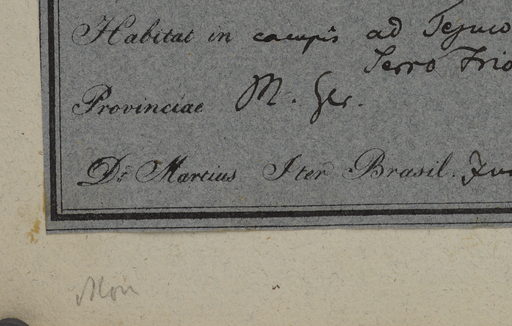 Habitat in campis ad Tejuco
Serro Frio
Provinciae M. Ger.
Dr. Martius Iter Brasil. Jun